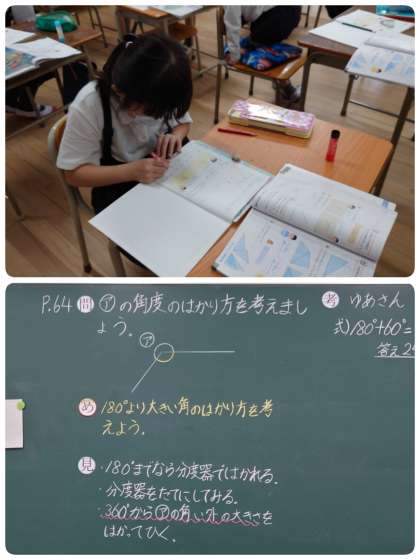 P.64 問 ㋐の角度のはかり方を考えまし
ょう。
㋐
め 180°より大きい角のはかり方を考
えよう。
見 ・180°までなら分度器ではかれる。
・分度器をたてにしてみる。
・360°から㋐の角い外の大きさを
はかってひく。
考 ゆあさん
式)180°+60°=
答え 24